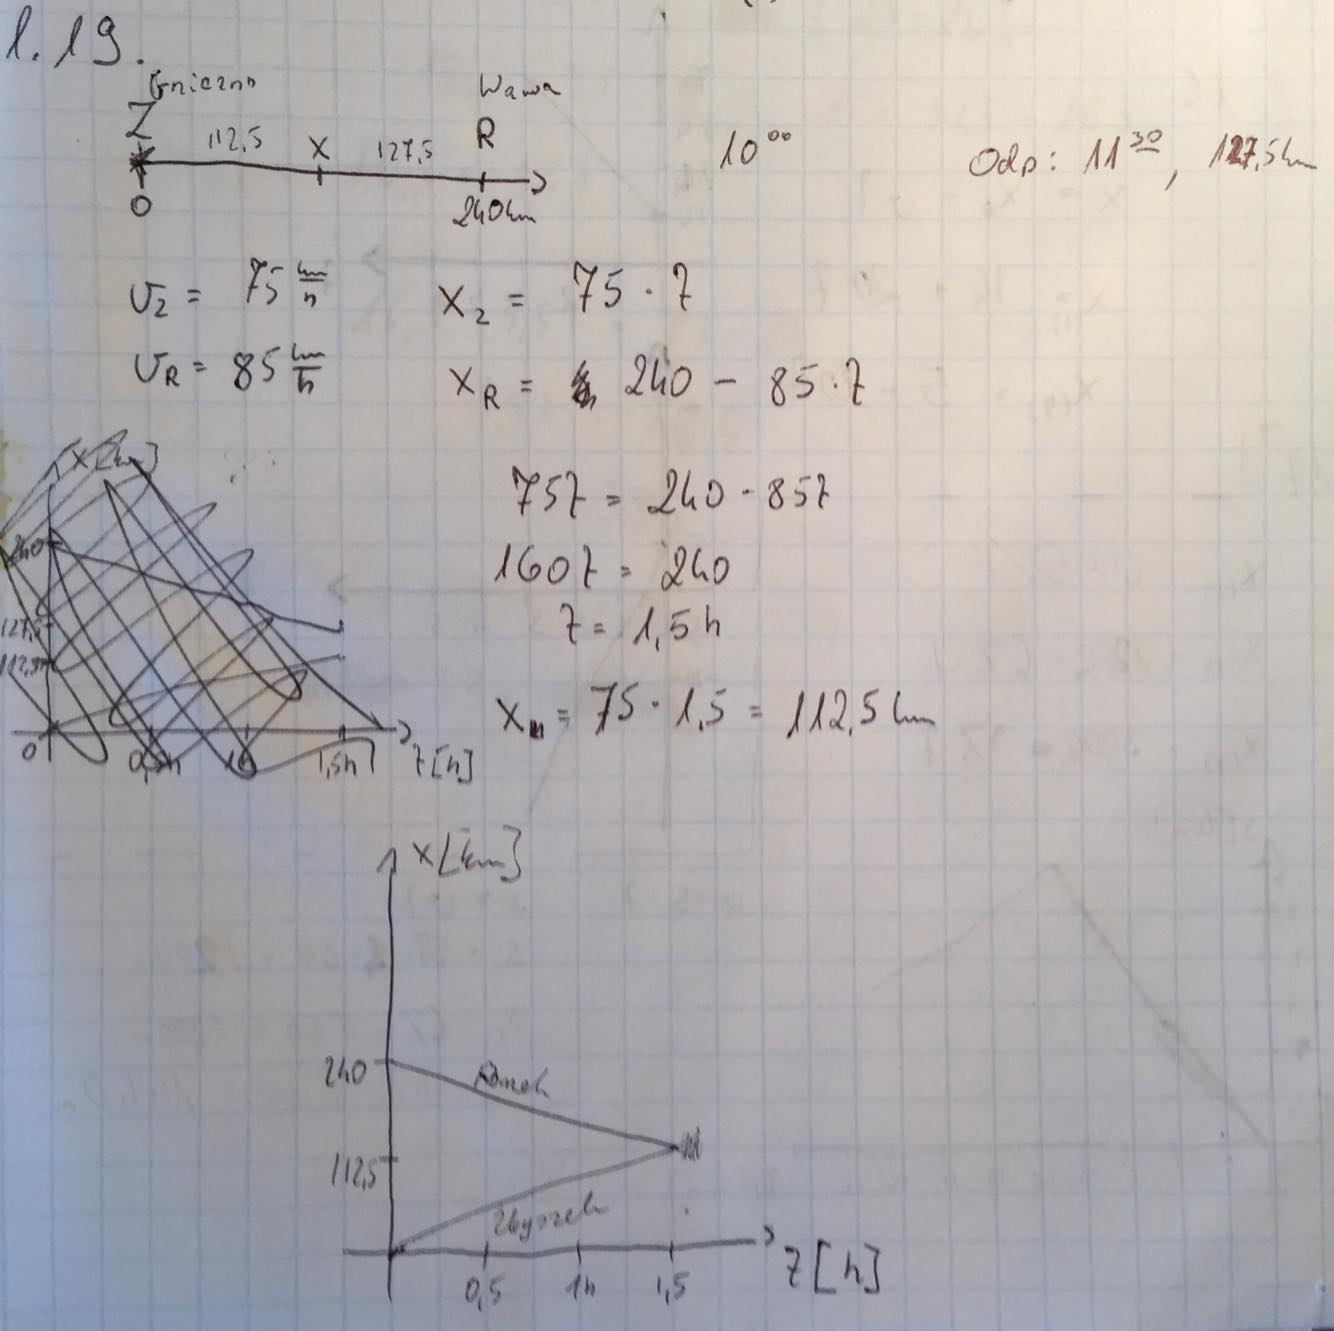 1.19.
Gniezno Wawa
Z 112,5 X 127,5 R
0 240km
10⁰⁰
Odp: 11³⁰, 127,5km
υz = 75 km/h xz = 75 · t
υR = 85 km/h xR = 240 - 85 · t
75t = 240 - 85t
160t = 240
t = 1,5h
x = 75 · 1,5 = 112,5 km
x[km]
240
127,5
112,5
0 1,5h t[h]
x[km]
240 Romek
112,5
Zbyszek
0,5 1h 1,5 t[h]